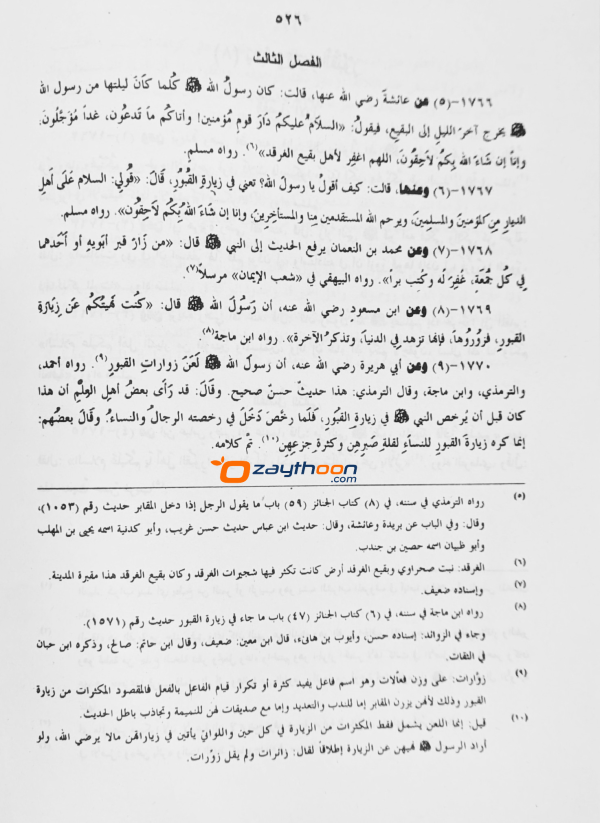 ٥٢٦
الفصل الثالث
١٧٦٦-(٥) عن عائشة رضي الله عنها، قالت: كان رسولُ الله ﷺ كُلما كانَ ليلتها من رسول الله
ﷺ يخرج آخرَ الليلِ إلى البقيع، فيقولُ: «السلامُ عليكُم دَارَ قومٍ مُؤمنين! وأتاكُم ما تَدعُون، غداً مُؤجَّلُون.
وإناَّ إن شَاءَ الله بِكُم لاَحِقُونَ، اللهم اغفِر لأهل بقيع الغرقد»(٦). رواه مسلم.
١٧٦٧-(٦) وعنها، قالت: كيف أقولُ يا رسولَ الله؟ تعني في زيارةِ القُبُورِ، قالَ: «قُولِي: السلام عَلَى أهلِ
الديارِ مِن المؤمنينَ والمسلمينَ، ويرحم الله المستقدمين مِنا والمستأخِرِينَ، وإنا إن شاءَ اللهُ بِكُم لاَحِقُون». رواه مسلم.
١٧٦٨-(٧) وعن محمد بن النعمان يرفع الحديث إلى النبي ﷺ قال: «من زَارَ قبر أبويهِ أو أحدهما
فِي كُل جُمُعَة، غُفِرَ لَه وكُتبَ براً». رواه البيهقي في «شعب الإيمان» مرسلاً(٧).
١٧٦٩-(٨) وعن ابن مسعودٍ رضي الله عنه، أن رَسُولَ الله ﷺ قال: «كُنت نهيتُكُم عَن زِيَارَةِ
القبورِ، فزُورُوهَا، فإنها تزهد في الدنياَ، وتذكرُ الآخرة». رواه ابن ماجة(٨)
١٧٧٠-(٩) وعن أبي هريرة رضي الله عنه، أن رسولَ الله ﷺ لَعَنَ زوارات القبور(٩). رواه أحمد،
والترمذي، وابن ماجة، وقال الترمذي: هذا حديثٌ حسنٌ صحيح. وقَالَ: قد رَأى بعضُ أهلِ العِلْمِ أن هذا
كان قبل أن يُرخص النبي ﷺ في زيارةِ القُبُورِ، فَلَما رخَّصَ دَخَلَ في رخصته الرجالُ والنساءُ. وقالَ بعضُهُم:
إنما كره زيارةَ القبورِ للنساءِ لقلةِ صَبرِهِن وكثرةِ جزعِهِن(١٠). تمَّ كلامه.
Ozaythoon
.com
(٥) رواه الترمذي في سننه، في (٨) كتاب الجنائز (٥٩) باب ما يقول الرجل إذا دخل المقابر حديث رقم (١٠٥٣)،
وقال: وفي الباب عن بريدة وعائشة، وقال: حديث ابن عباس حديث حسن غريب، وأبو كدنية اسمه يحيى بن المهلب
وأبو ظبيان اسمه حصين بن جندب.
(٦) الغرقد: نبت صحراوي وبقيع الغرقد أرض كانت تكثر فيها شجيرات الغرقد وكان بقيع الغرقد هذا مقبرة المدينة.
(٧) وإسناده ضعيف.
(٨) رواه ابن ماجة في سننه، في (٦) كتاب الجنائز (٤٧) باب ما جاء في زيارة القبور حديث رقم (١٥٧١).
وجاء في الزوائد: إسناده حسن، وأيوب بن هانئ، قال ابن معين: ضعيف، وقال ابن حاتم: صالح، وذكره ابن حبان
في الثقات.
(٩) زوَّارات: على وزن فعالات وهو اسم فاعل يفيد كثرة أو تكرار قيام الفاعل بالفعل فالمقصود المكثرات من زيارة
القبور وذلك لأنهن يزرن المقابر إما للندب والتعديد وإما مع صديقات لهن للنميمة وتجاذب باطل الحديث.
(١٠) قيل: إنما اللعن يشمل فقط المكثرات من الزيارة في كل حين واللواتي يأتين في زيارتهن مالا يرضي الله، ولو
أراد الرسول ﷺ نهيهن عن الزيارة إطلاقاً لقال: زائرات ولم يقل زوَّرات.